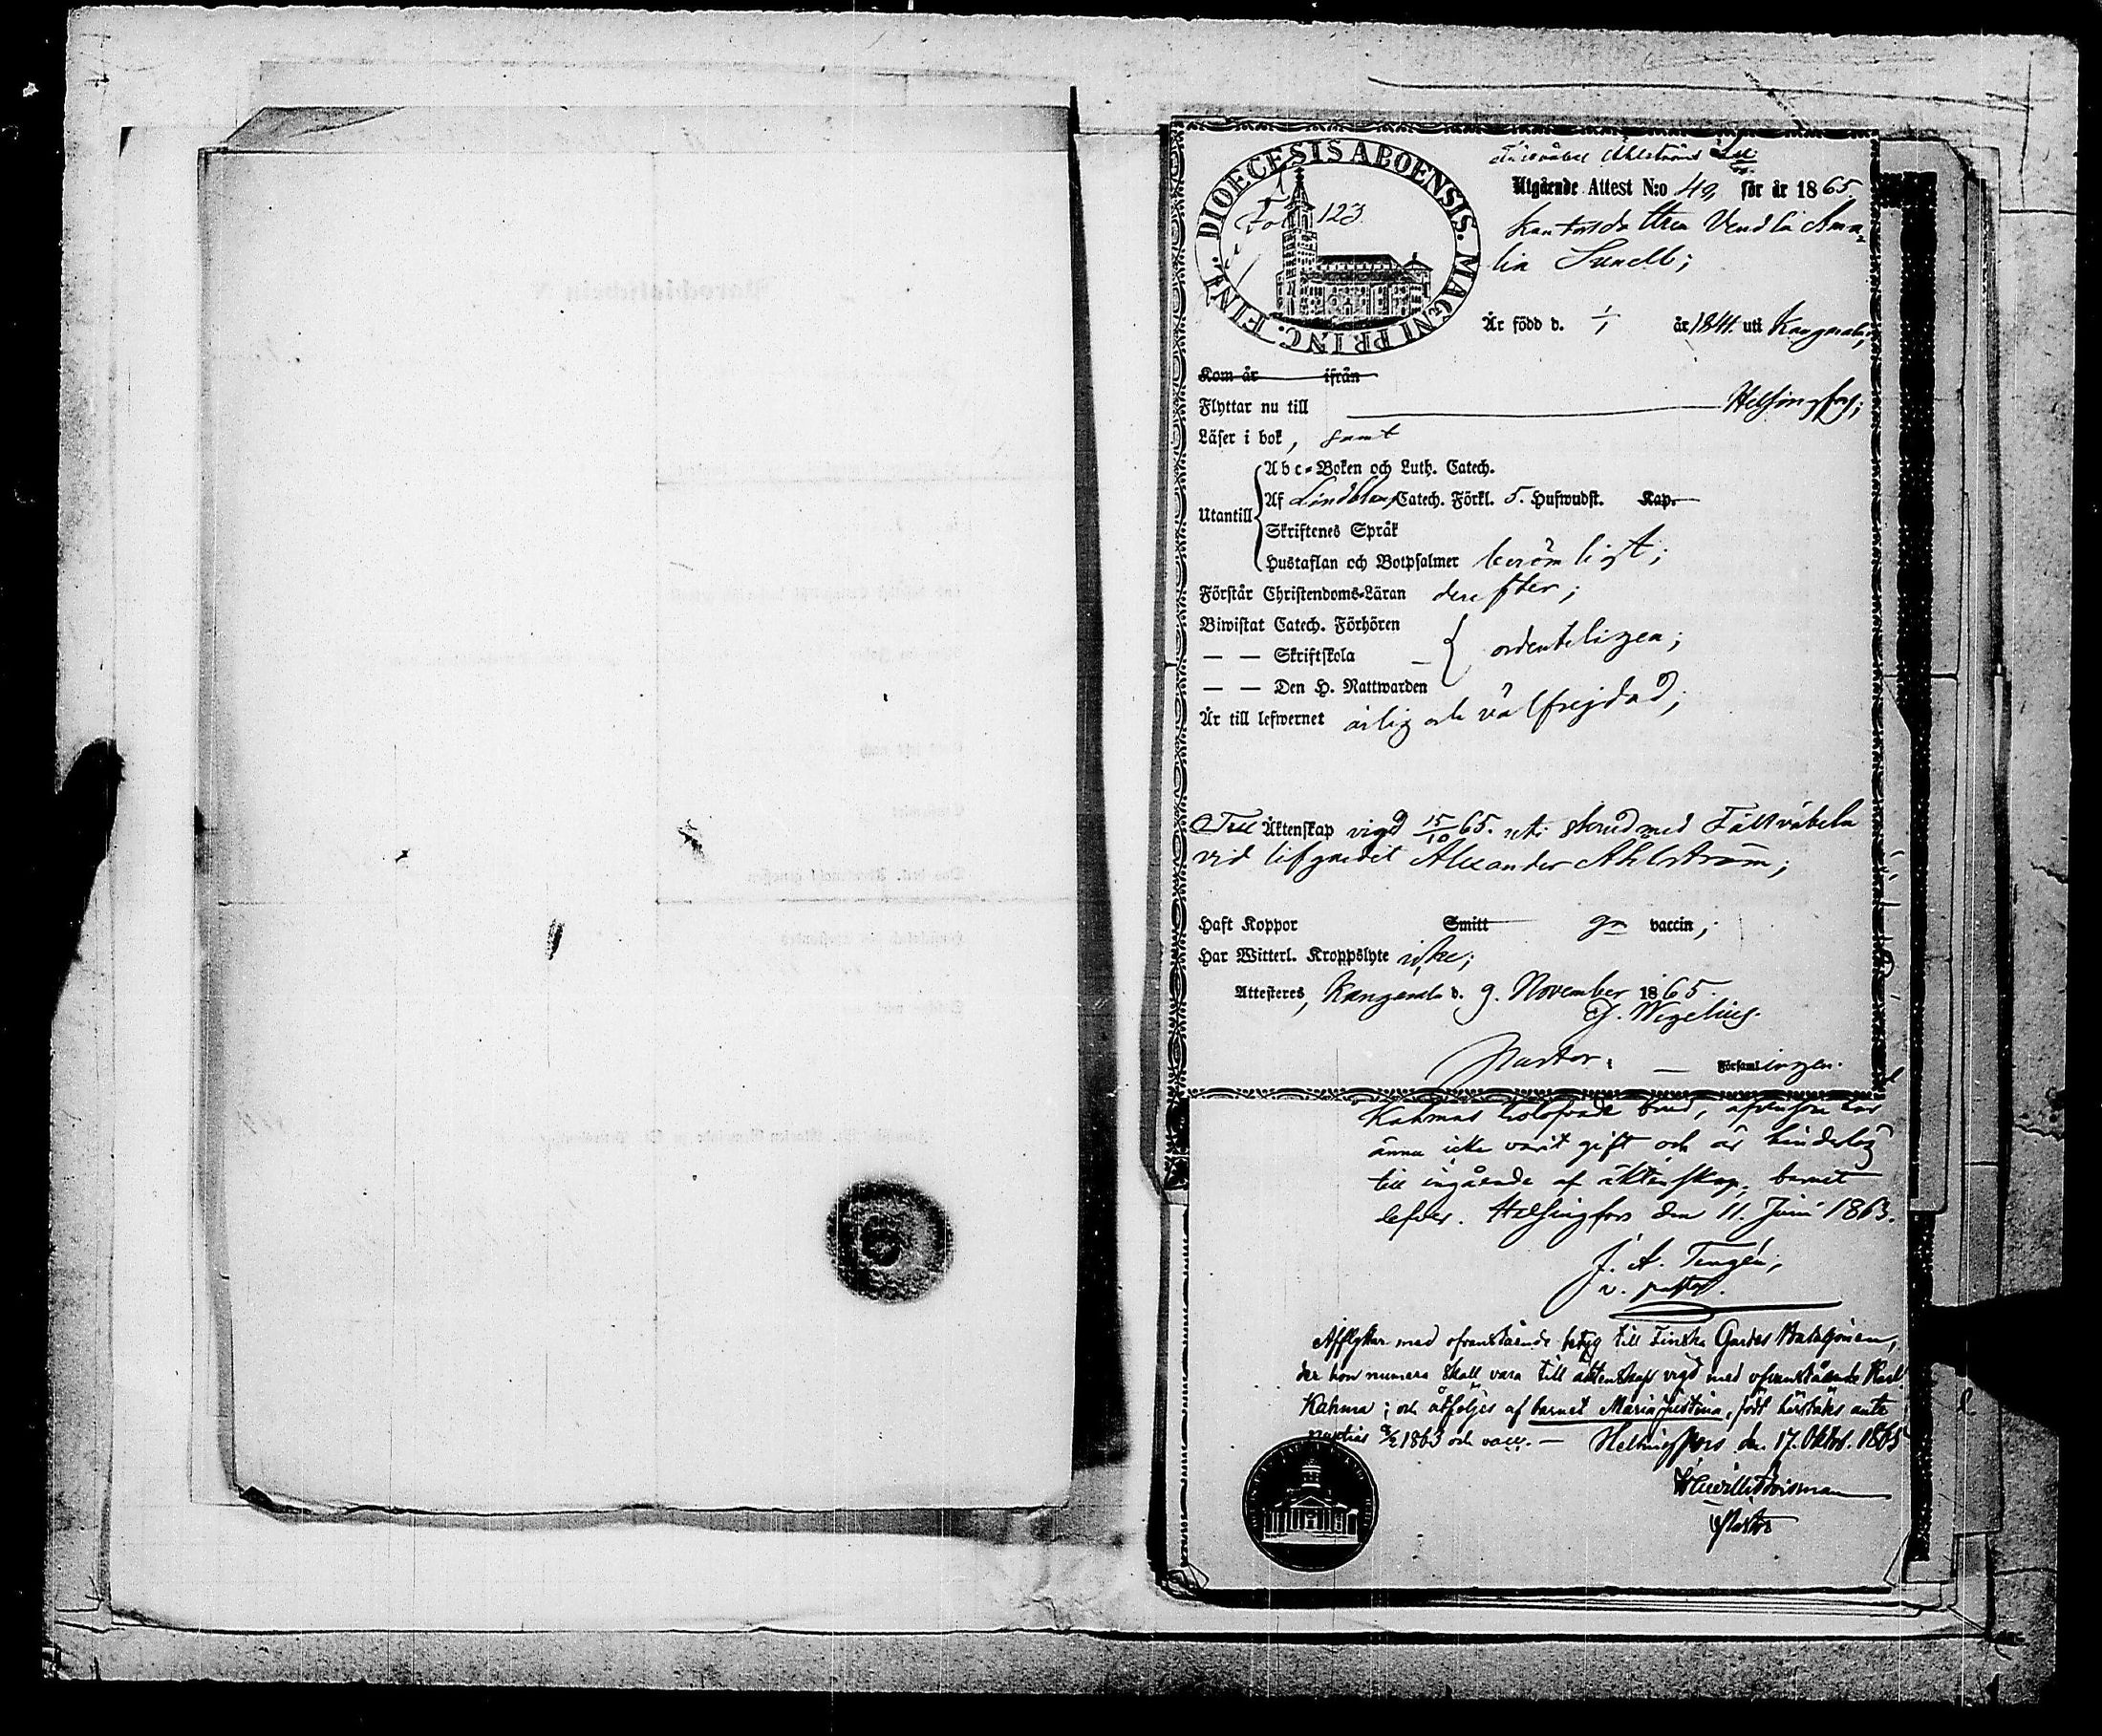 DIOECESIS ABOENSIS. MAGNI PRINC. FINL.
Fol. 123.
Fältväbel Ahlströms
Utgående Attest N:o 49, för år 1865.
Kantorsdottren Vendla Ama-
lia Sunell;
Är född d. 1/1 år 1841. uti Kangasala;
Kom år ifrån
Flyttar nu till Helsingfors;
Läser i bok, samt
Utantill
Abc-Boken och Luth. Catech.
Af Lindbloms Catech. Förkl. 5. Hufwudst. Kap.
Skriftenes Språk
Hustaflan och Botpsalmer berömligt;
Förstår Christendoms-Läran derefter;
Biwistat Catech. Förhören
— — Skriftskola ordenteligen;
— — Den H. Nattwarden
Är till lefwernet ärlig och välfrejdad;
Till Äktenskap vigd 15/10 65. uti stånd med Fältväbeln
vid lifgardet Alexander Ahlström;
Haft Koppor Smitt gn vaccin;
Har Witterl. Kroppslyte icke;
Attesteres, Kangasala d. 9. November 1865.
Wegelius.
Pastor. — Församlingen.
Kahmas trolofvade brud, har
ännu icke varit gift och är hinderlös
till ingående af äktenskap, barnet
lefver. Helsingfors den 11. Juni 1863.
J. A. Tengén,
v. pastor.
Afflyttar med ofvanstående betyg till Finska Gardes Bataljonen,
der hon numera skall vara till äktenskap vigd med ofvanstående Karl
Kahma; och åtföljes af barnet Maria Justina, född härstädes ante
nuptias 9/2 1863 och vacc. — Helsingfors den 17. Oktob. 1865
Pastor